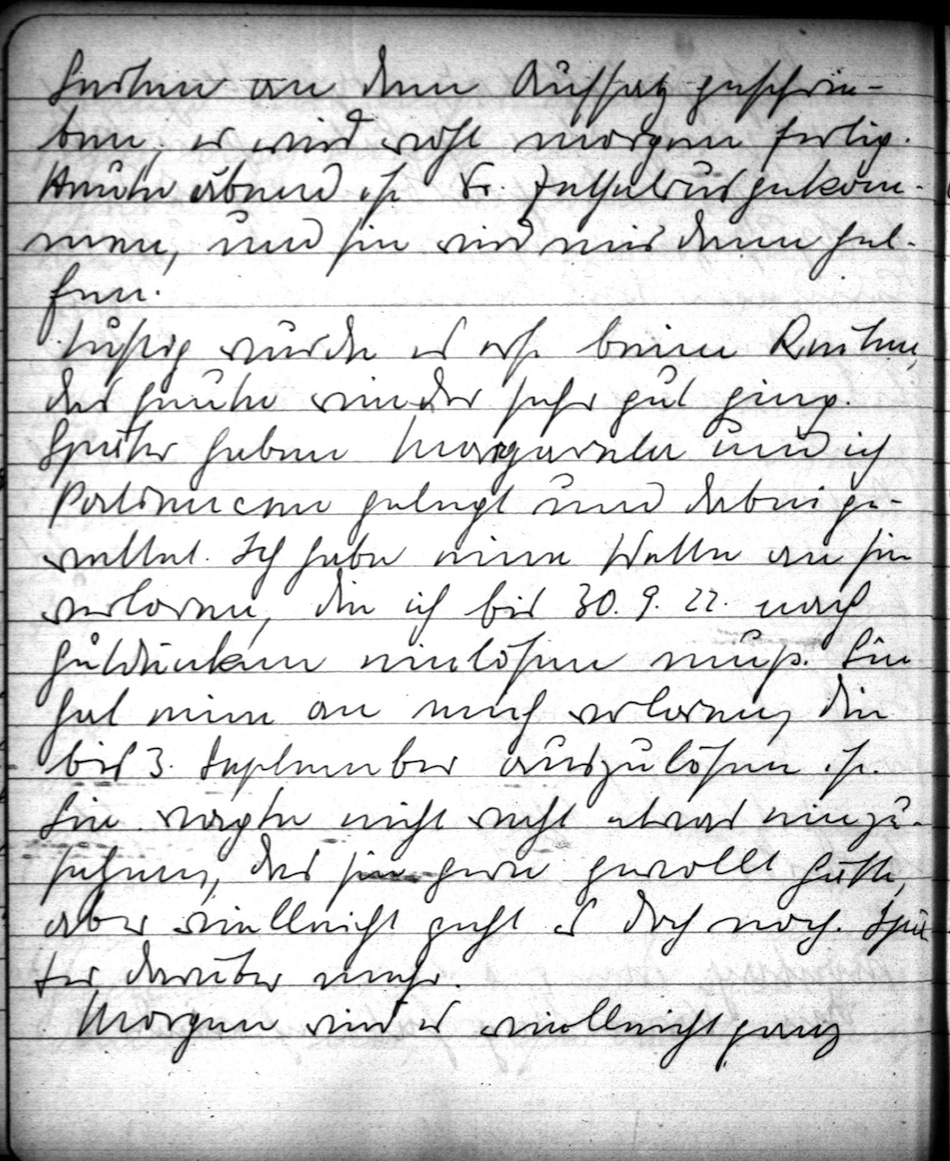 Gestern an dem Aufsatz geschrie-
ben, er wird wohl morgen fertig.
Heute abend ist Fr. gekom-
men, und sie wird mir dann hel-
fen.
Lustig wurde es erst beim Reiten,
das heute wieder sehr gut ging.
Später haben Margarete und ich
Patiencen gelegt und dabei ge-
wettet. Ich habe eine Wette an sie
verloren, die ich bis 30. 9. 22. nach
Gutdünken einlösen muß. Sie
hat eine an mich verloren, die
bis 3. September auszulösen ist.
Sie wagte nicht recht etwas einzu-
sehen, das sie gern gewollt hätte,
aber vielleicht geht es doch noch. Spä
ter darüber mehr.
Morgen wird es vielleicht ganz